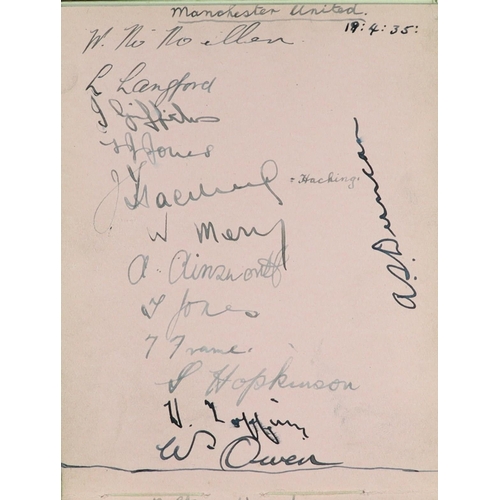 Manchester United.
19:4:35:
W. McMillen
L Langford
J Griffiths
T J Jones
J Hacking = Hacking.
W Merry
A. Ainsworth
T Jones
T Frame.
S Hopkinson
W. Owen
A.S. Duncan